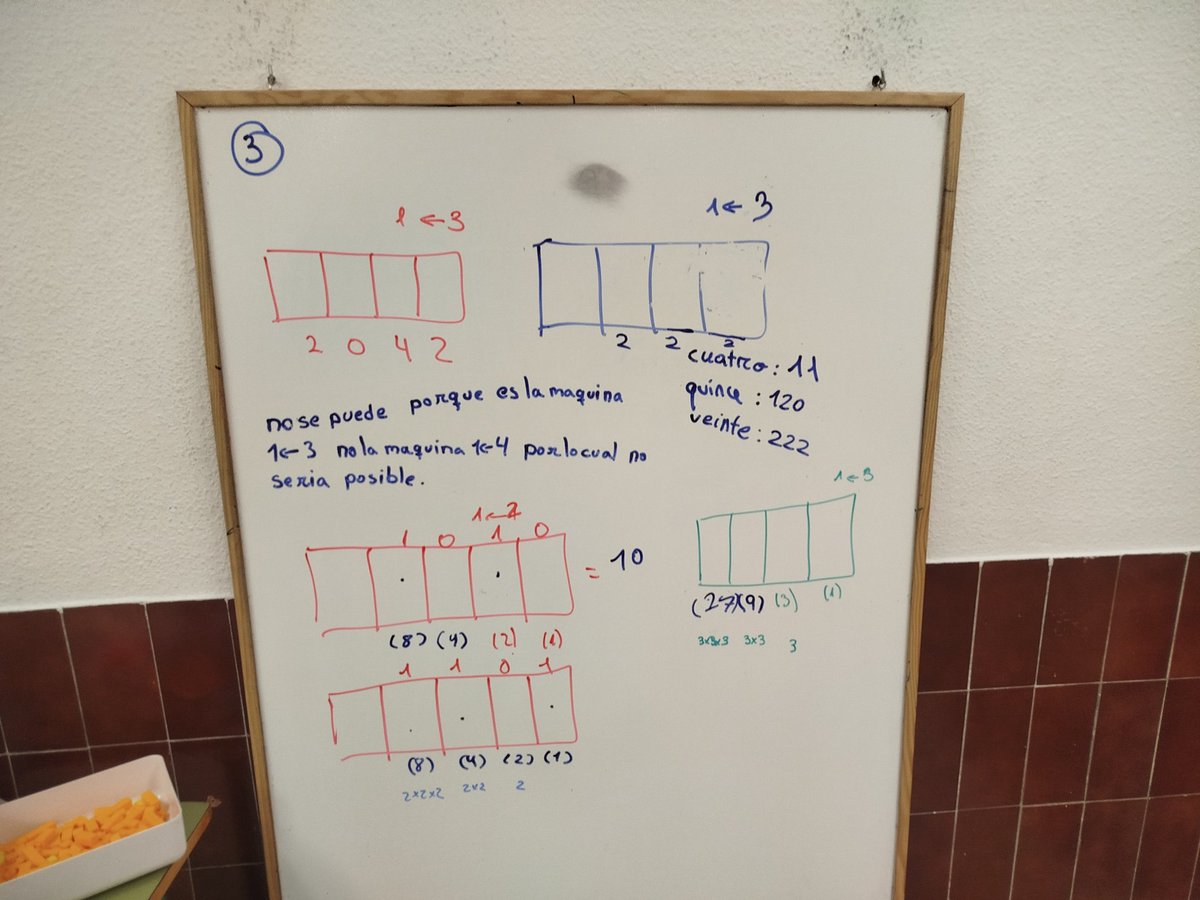 3
1 ← 3
2 0 4 2
1 ← 3
2 2 2
cuatro: 11
quince : 120
veinte: 222
no se puede porque es la maquina
1←3 no la maquina 1←4 por lo cual no
seria posible.
1 0 1 0
= 10
(8) (4) (2) (1)
1 1 0 1
(8) (4) (2) (1)
2×2×2 2×2 2
1 ← 3
(27) (9) (3) (1)
3×3×3 3×3 3